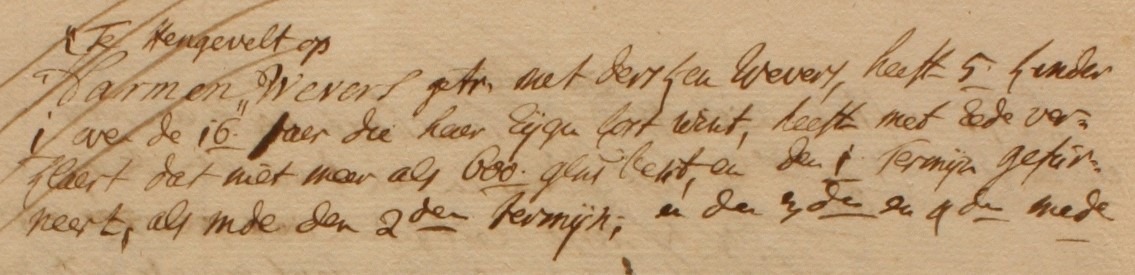 Te Hengevelt op
Harmen Wevers getr. met derszen Wevers, heeft 5 kinder
1 over de 16 Jaer die haer Eijgen cost wint, heeft met Eede ver=
klaert dat niet meer als 600 gl. besit, en den 1 Termijn gefur=
neert, als mde den 2den Termijn, en den 3den en 4den mede